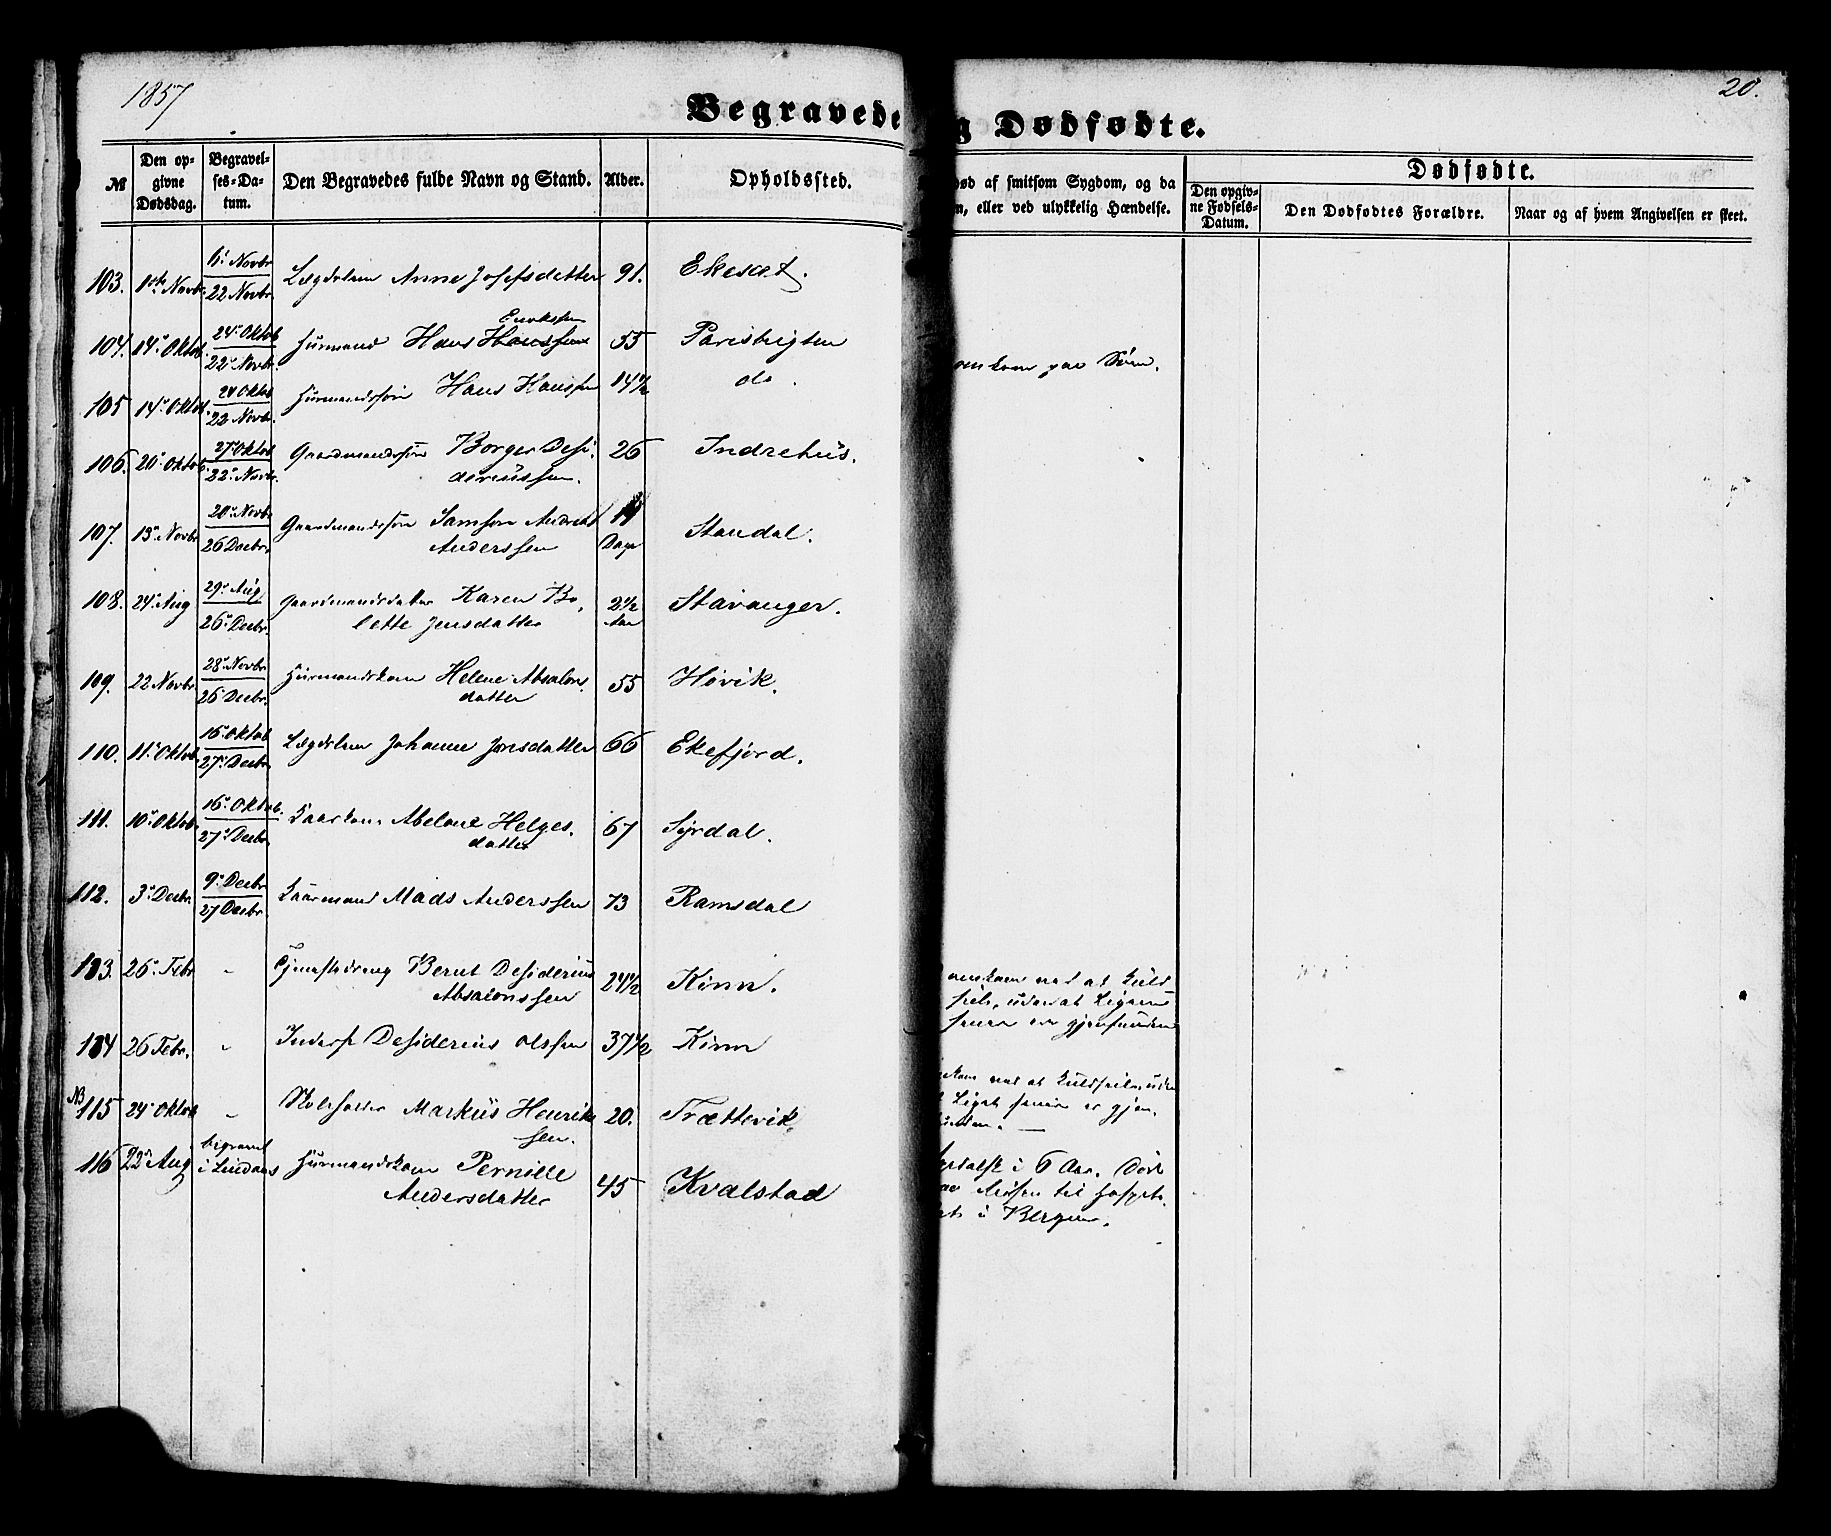 1857
20.
Begravede
g Dødfødte.
№
Den opgivne Dødsdag.
Begravelses-Datum.
Den Begravedes fulde Navn og Stand.
Alder.
Opholdssted.
død af smitsom Sygdom, og da
n, eller ved ulykkelig Hændelse.
Dødfødte.
Den opgivne Fødsels-Datum.
Den Dødfødtes Forældre.
Naar og af hvem Angivelsen er skeet.
103. 1ste Novbr. 6. Novbr 22 Novbr Lægdslem Anne Josefsdatter 91. Ekesæt.
Eriksen
104. 14. Oktob. 24. Oktob 22. Novbr. Huusmand Hans Hanssen 55 Parisbugten
omkom paa Søen.
105 14. Oktob. 24 Oktob 22 Novbr. Huusmandssøn Hans Hanssen 14 1/2 do.
106. 20. Oktob. 27. Oktob 22. Novbr. Gaardmandssøn Borger Desi-
deriussen. 26 Indrehus.
107. 13. Novbr 20. Novbr 26 Decbr. Gaardmandssøn Samson Andreas
Anderssen Dage Standal.
108. 24. Aug 29. Aug 26. Decbr. Gaardmandsdatter Karen Bo-
lette Jensdatter 2 1/2 Aar Stavanger.
109. 22 Novbr 28. Novbr 26 Decbr. Huusmandskone Helene Absalons-
datter 55 Høvik.
110. 11. Oktob. 16. Oktob 27. Decbr. Lægdslem Johanne Jonsdatter 66 Ekefjord.
111. 10. Oktob. 16. Oktob. 27. Decbr. Kaarkone Abelone Helges-
datter 67 Syrdal.
112. 3. Decbr. 9. Decbr 27 Decbr. Kaarmand Mads Anderssen 73 Ramsdal
113. 26. Febr " Tjenestedreng Bernt Desiderius
Absalonssen 24 1/2 Kinn.
omkom ved at Kuld-
seile, uden at Ligene
senere er gjenfundne
114 26 Febr. " Inderst Desiderius Olssen 37 1/2 Kinn
NB
115 24. Oktob " Skoleholder Markus Henrik-
sen. 20. Trættevik.
kom ved at Kuldseile, uden
Liget senere er gjen-
funden. —
116 22. Aug begravet i Lindaas Huusmandskone Pernille
Andersdatter 45 Kvalstad
i 6 Aar. Døde
paa Reisen til Hospita-
let i Bergen.